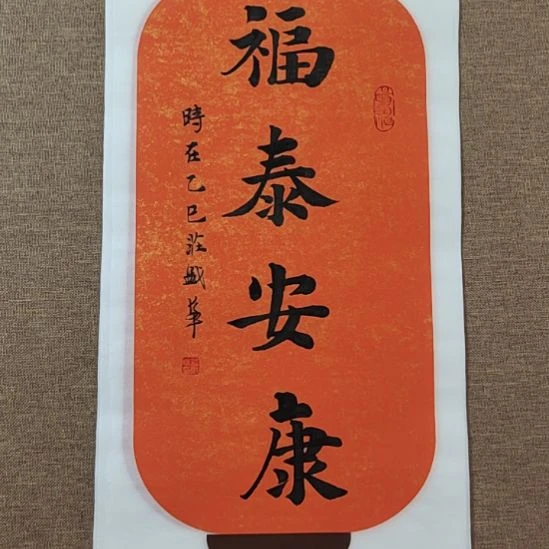 福泰安康
時在乙巳莊盛華